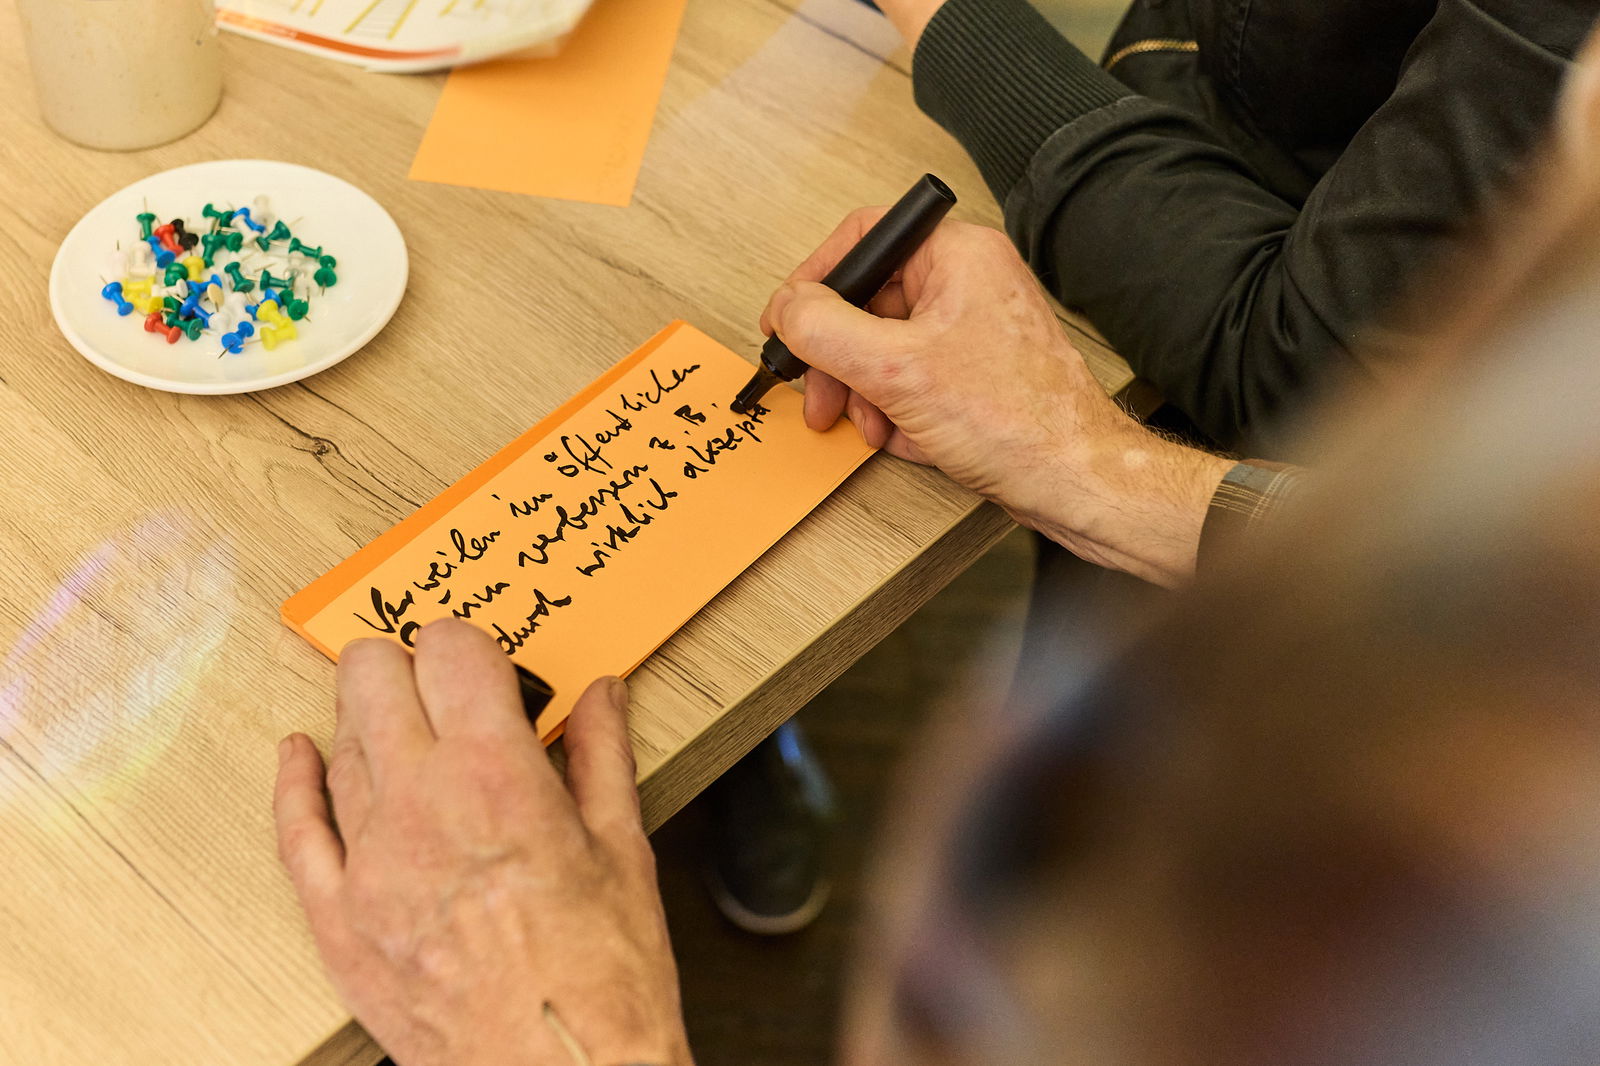 Verweilen im öffentlichen
verbessern z.B.
durch wirklich akzepta